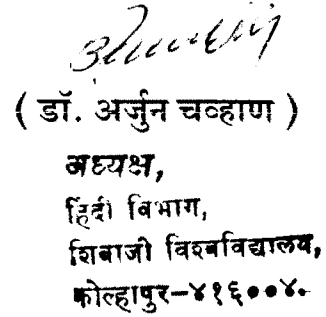 ( डॉ. अर्जुन चव्हाण )
अध्यक्ष,
हिंदी विभाग,
शिवाजी विश्वविद्यालय,
कोल्हापुर-४१६००४.